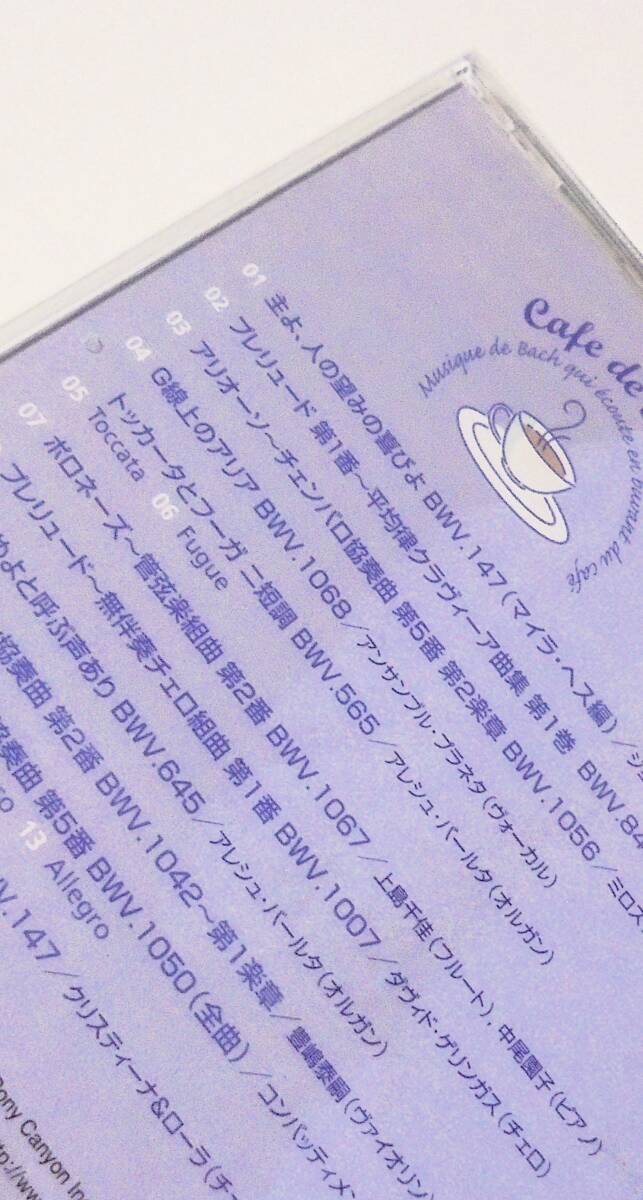 Cafe de
Musique de Bach qui écoute en buvant du café
01 主よ、人の望みの喜びよ BWV.147(マイラ・ヘス編)/
02 プレリュード 第1番〜平均律クラヴィーア曲集 第1巻 BWV.84
03 アリオーソ〜チェンバロ協奏曲 第5番 第2楽章 BWV.1056/ミロス
04 G線上のアリア BWV.1068/アンサンブル・プラネタ(ヴォーカル)
トッカータとフーガ ニ短調 BWV.565/アレシュ・バールタ(オルガン)
05 Toccata 06 Fugue
07 ポロネーズ〜管弦楽組曲 第2番 BWV.1067/上島千佳(フルート), 中尾園子(ピアノ)
プレリュード〜無伴奏チェロ組曲 第1番 BWV.1007/ダヴィド・ゲリンガス(チェロ)
めよと呼ぶ声あり BWV.645/アレシュ・バールタ(オルガン)
協奏曲 第2番 BWV.1042〜第1楽章/豊嶋泰嗣(ヴァイオリン
協奏曲 第5番 BWV.1050(全曲)/コンバッティメ
ro 13 Allegro
WV.147/クリスティーナ&ローラ(チー
Pony Canyon Inc
http://ww